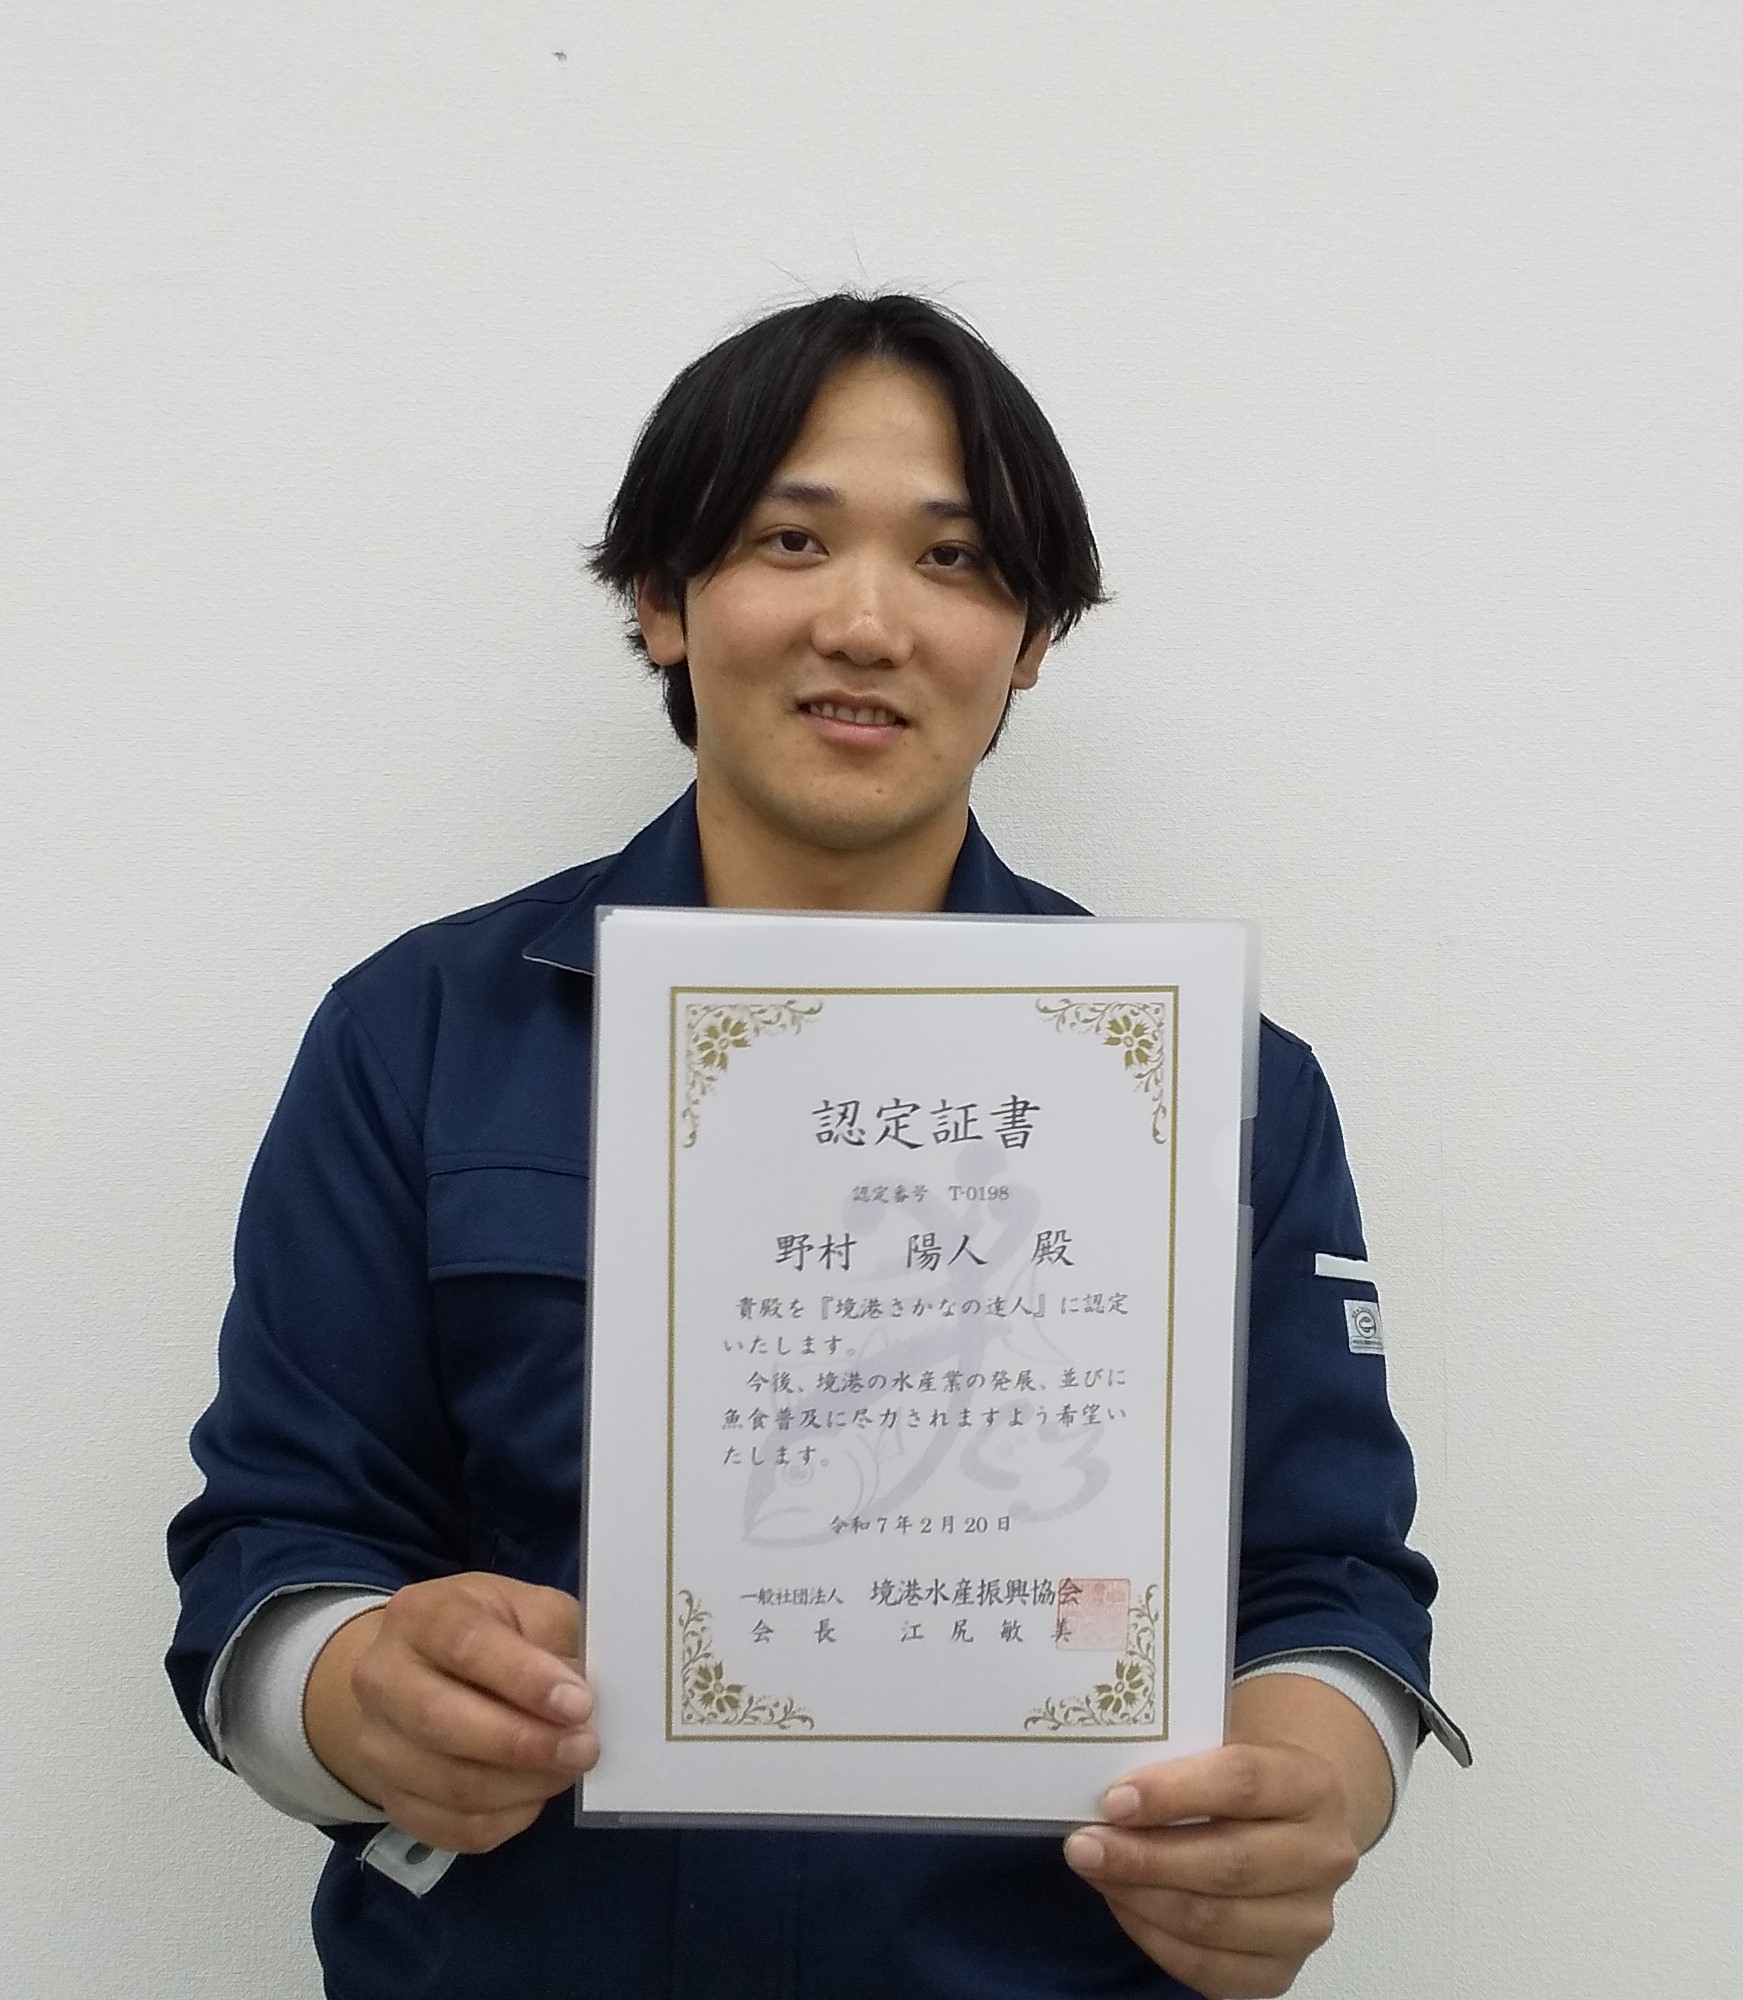 認定証書
認定番号　T-0198
野村　陽人　殿
貴殿を『境港さかなの達人』に認定
いたします。
今後、境港の水産業の発展、並びに
魚食普及に尽力されますよう希望い
たします。
令和7年2月20日
一般社団法人　境港水産振興協会
会　長　江　尻　敏　美